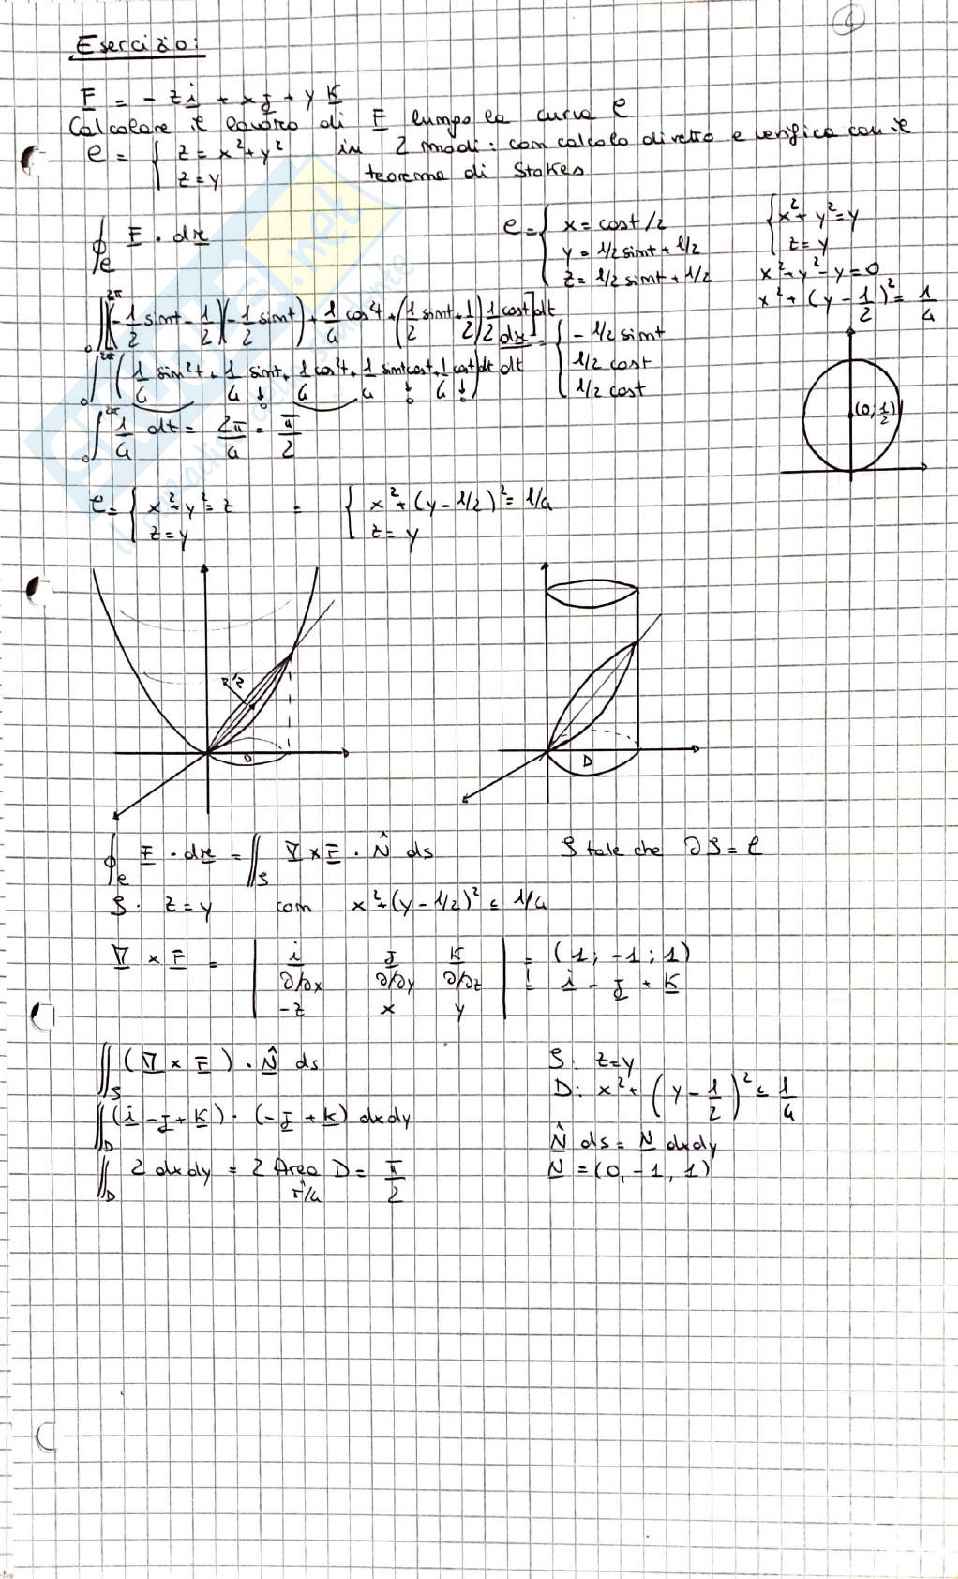 1
Esercizio:
F = - z i + x j + y k
Calcolare il lavoro di F lungo la curva C
C = { z = x² + y² in 2 modi: con calcolo diretto e verifica con il
z = y teorema di Stokes
∮_C F · dr
C = { x = cost/2
y = 1/2 sint + 1/2
z = 1/2 sint + 1/2
{ x² + y² = y
z = y
x² + y² - y = 0
x² + (y - 1/2)² = 1/4
∫₀^2π [(-1/2 sint - 1/2)(-1/2 sint) + 1/4 cos²t + (1/2 sint + 1/2) 1/2 cost] dt
dr = { - 1/2 sint
1/2 cost
1/2 cost
∫₀^2π (1/4 sin²t + 1/4 sint + 1/4 cos²t + 1/4 sint cost + 1/4 cost) dt dt
0 0 0
∫₀^2π 1/4 dt = 2π/4 = π/2
(0, 1/2)
C = { x² + y² = z = { x² + (y - 1/2)² = 1/4
z = y z = y
D
D
∮_C F · dr = ∬_S ∇ × F · N̂ ds S tale che ∂S = C
S: z = y con x² + (y - 1/2)² ≤ 1/4
∇ × F = | i j k | = (1; -1; 1)
∂/∂x ∂/∂y ∂/∂z = i - j + k
-z x y
∬_S (∇ × F) · N̂ ds
S: z = y
D: x² + (y - 1/2)² ≤ 1/4
∬_D (i - j + k) · (-j + k) dxdy
N̂ ds = N dxdy
∬_D 2 dxdy = 2 Area D = π/2
π/4
N = (0, -1, 1)